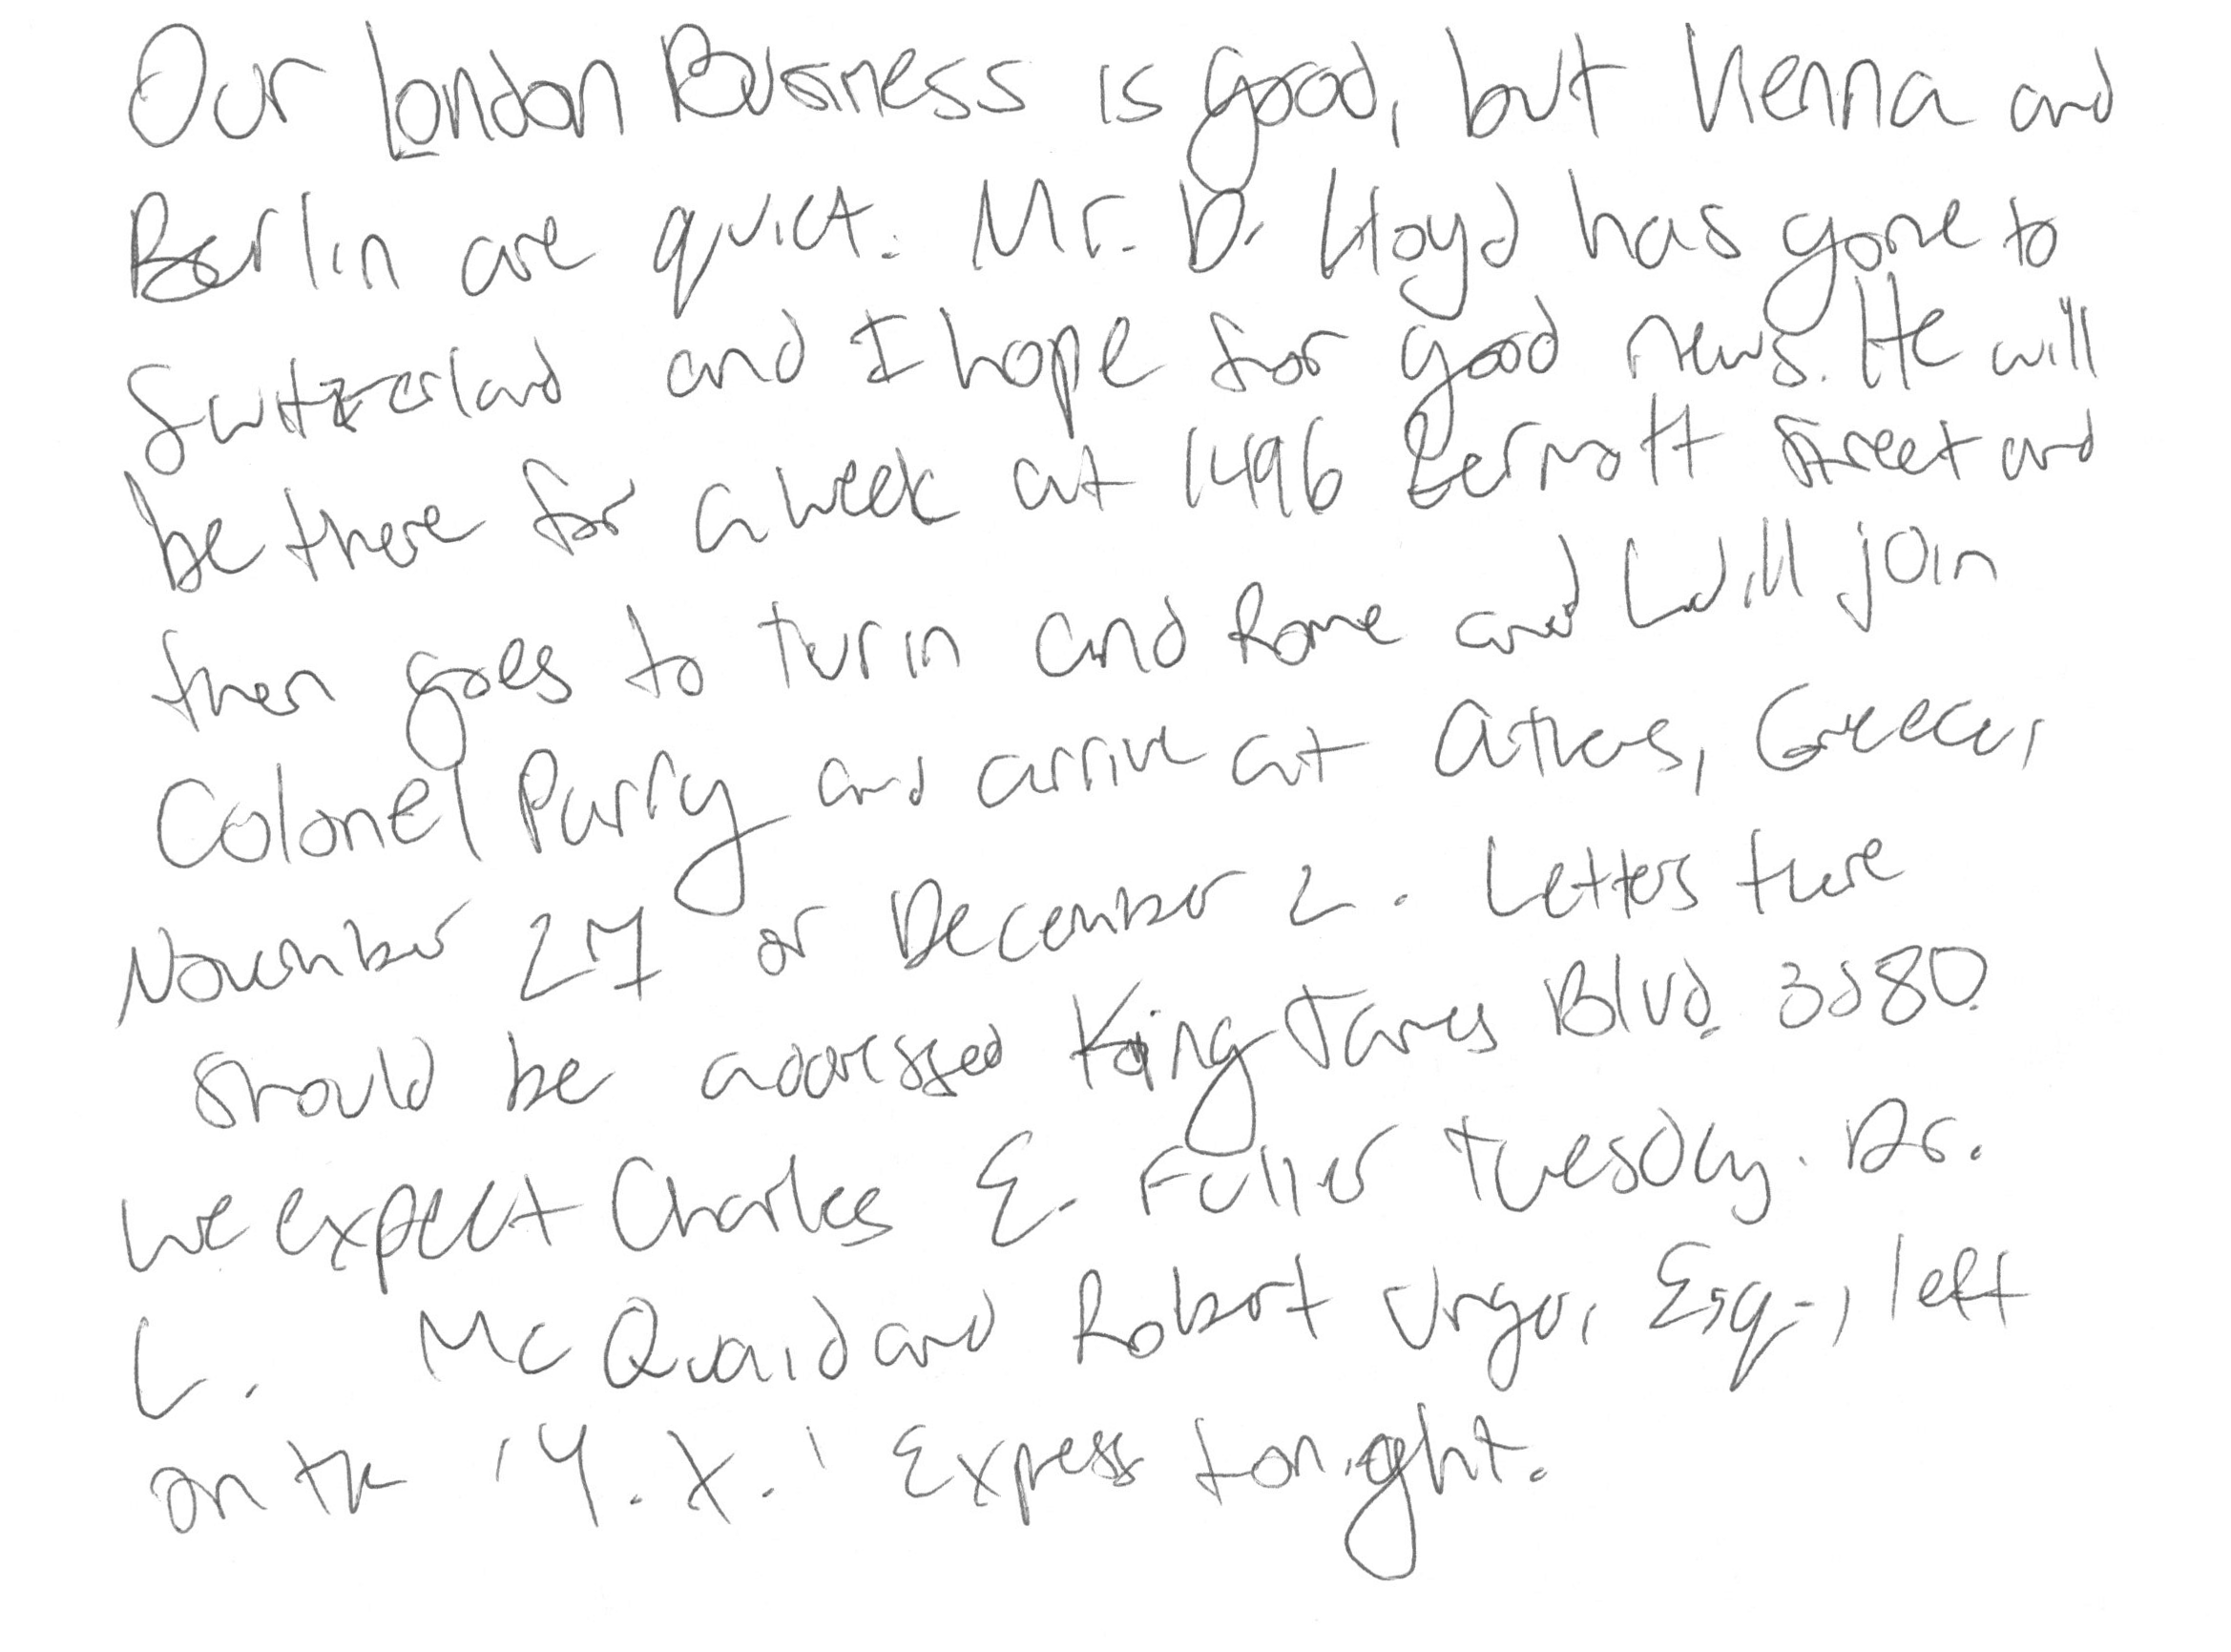 Our London Business is good, but Vienna and
Berlin are quiet. Mr. D. Lloyd has gone to
Switzerland and I hope for good news. He will
be there for a week at 1496 Zermott Street and
then goes to Turin and Rome and will join
Colonel Parry and arrive at Athens, Greece,
November 27 or December 2. Letters there
should be addressed King James Blvd. 3580.
We expect Charles E. Fuller Tuesday. Dr.
L. McQuaid and Robert Unger, Esq., left
on the 'Y. X.' Express tonight.